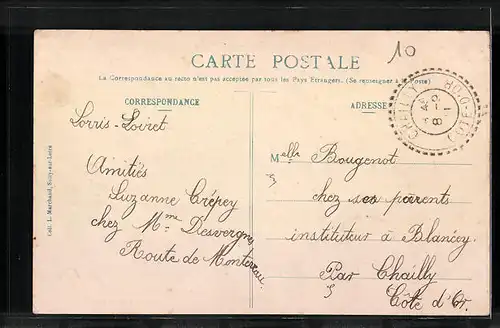 10
CARTE POSTALE
La Correspondance au recto n'est pas acceptée par tous les Pays Etrangers. (Se renseigner à la Poste)
CORRESPONDANCE
ADRESSE
CHAILLY
CÔTE-D'OR
8
Lorris-Loiret
Amitiés
Suzanne Crépey
chez Mme Desvergnes
Route de Montereau.
Melle Bougenot
chez ses parents
instituteur à Blancey
Par Chailly
Côte d'Or.
Coll. L. Marchand, Sully-sur-Loire